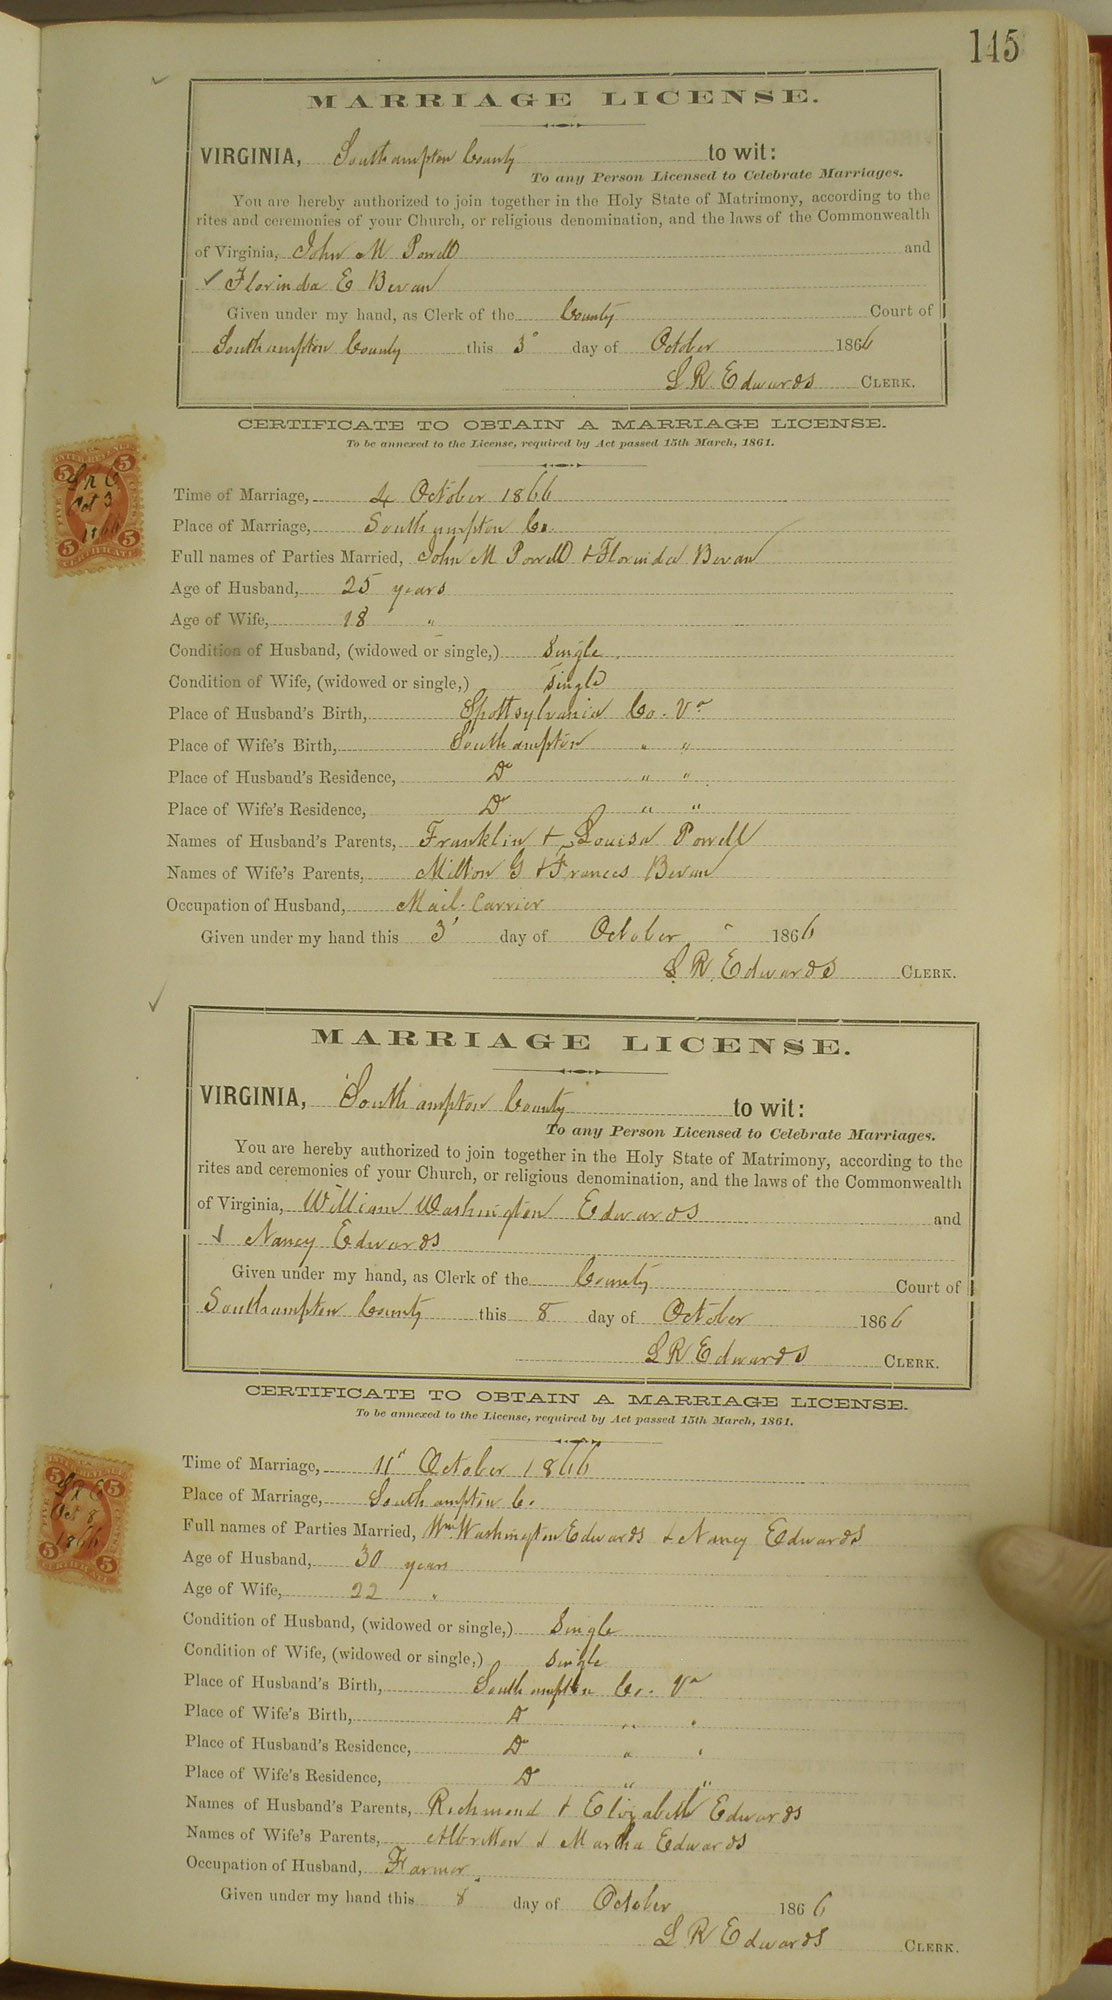 145
MARRIAGE LICENSE.
VIRGINIA, Southampton County to wit:
To any Person Licensed to Celebrate Marriages.
You are hereby authorized to join together in the Holy State of Matrimony, according to the
rites and ceremonies of your Church, or religious denomination, and the laws of the Commonwealth
of Virginia, John M Powell and
Florinda E Bevan
Given under my hand, as Clerk of the County Court of
Southampton County this 3° day of October 1866
L R Edwards CLERK.
CERTIFICATE TO OBTAIN A MARRIAGE LICENSE.
To be annexed to the License, required by Act passed 15th March, 1861.
Time of Marriage, 4 October 1866
Place of Marriage, Southampton Co.
Full names of Parties Married, John M Powell & Florinda Bevan
Age of Husband, 25 years
Age of Wife, 18 "
Condition of Husband, (widowed or single,) Single.
Condition of Wife, (widowed or single,) Single
Place of Husband's Birth, Spottsylvania Co. Va
Place of Wife's Birth, Southampton " "
Place of Husband's Residence, Do " "
Place of Wife's Residence, Do " "
Names of Husband's Parents, Franklin & Louisa Powell
Names of Wife's Parents, Milton G & Frances Bevan
Occupation of Husband, Mail-Carrier
Given under my hand this 3' day of October " 1866
L R. Edwards CLERK.
5 5
L R E
Oct 3
1866
5 5
CERTIFICATE
MARRIAGE LICENSE.
VIRGINIA, Southampton County to wit:
To any Person Licensed to Celebrate Marriages.
You are hereby authorized to join together in the Holy State of Matrimony, according to the
rites and ceremonies of your Church, or religious denomination, and the laws of the Commonwealth
of Virginia, William Washington Edwards and
& Nancy Edwards
Given under my hand, as Clerk of the County Court of
Southampton County this 8 day of October 1866
L R Edwards CLERK.
CERTIFICATE TO OBTAIN A MARRIAGE LICENSE.
To be annexed to the License, required by Act passed 15th March, 1861.
Time of Marriage, 11" October 1866
Place of Marriage, Southampton C.
Full names of Parties Married, Wm Washington Edwards & Nancy Edwards
Age of Husband, 30 years
Age of Wife, 22 "
Condition of Husband, (widowed or single,) Single
Condition of Wife, (widowed or single,) single
Place of Husband's Birth, Southampton Co. Va
Place of Wife's Birth, Do " "
Place of Husband's Residence, Do " "
Place of Wife's Residence, Do " "
Names of Husband's Parents, Richmond & Elizabeth Edwards
Names of Wife's Parents, Albritton & Martha Edwards
Occupation of Husband, Farmer.
Given under my hand this 8 day of October 1866
L R Edwards CLERK.
5 5
L R E
Oct 8
1866
5 5
CERTIFICATE